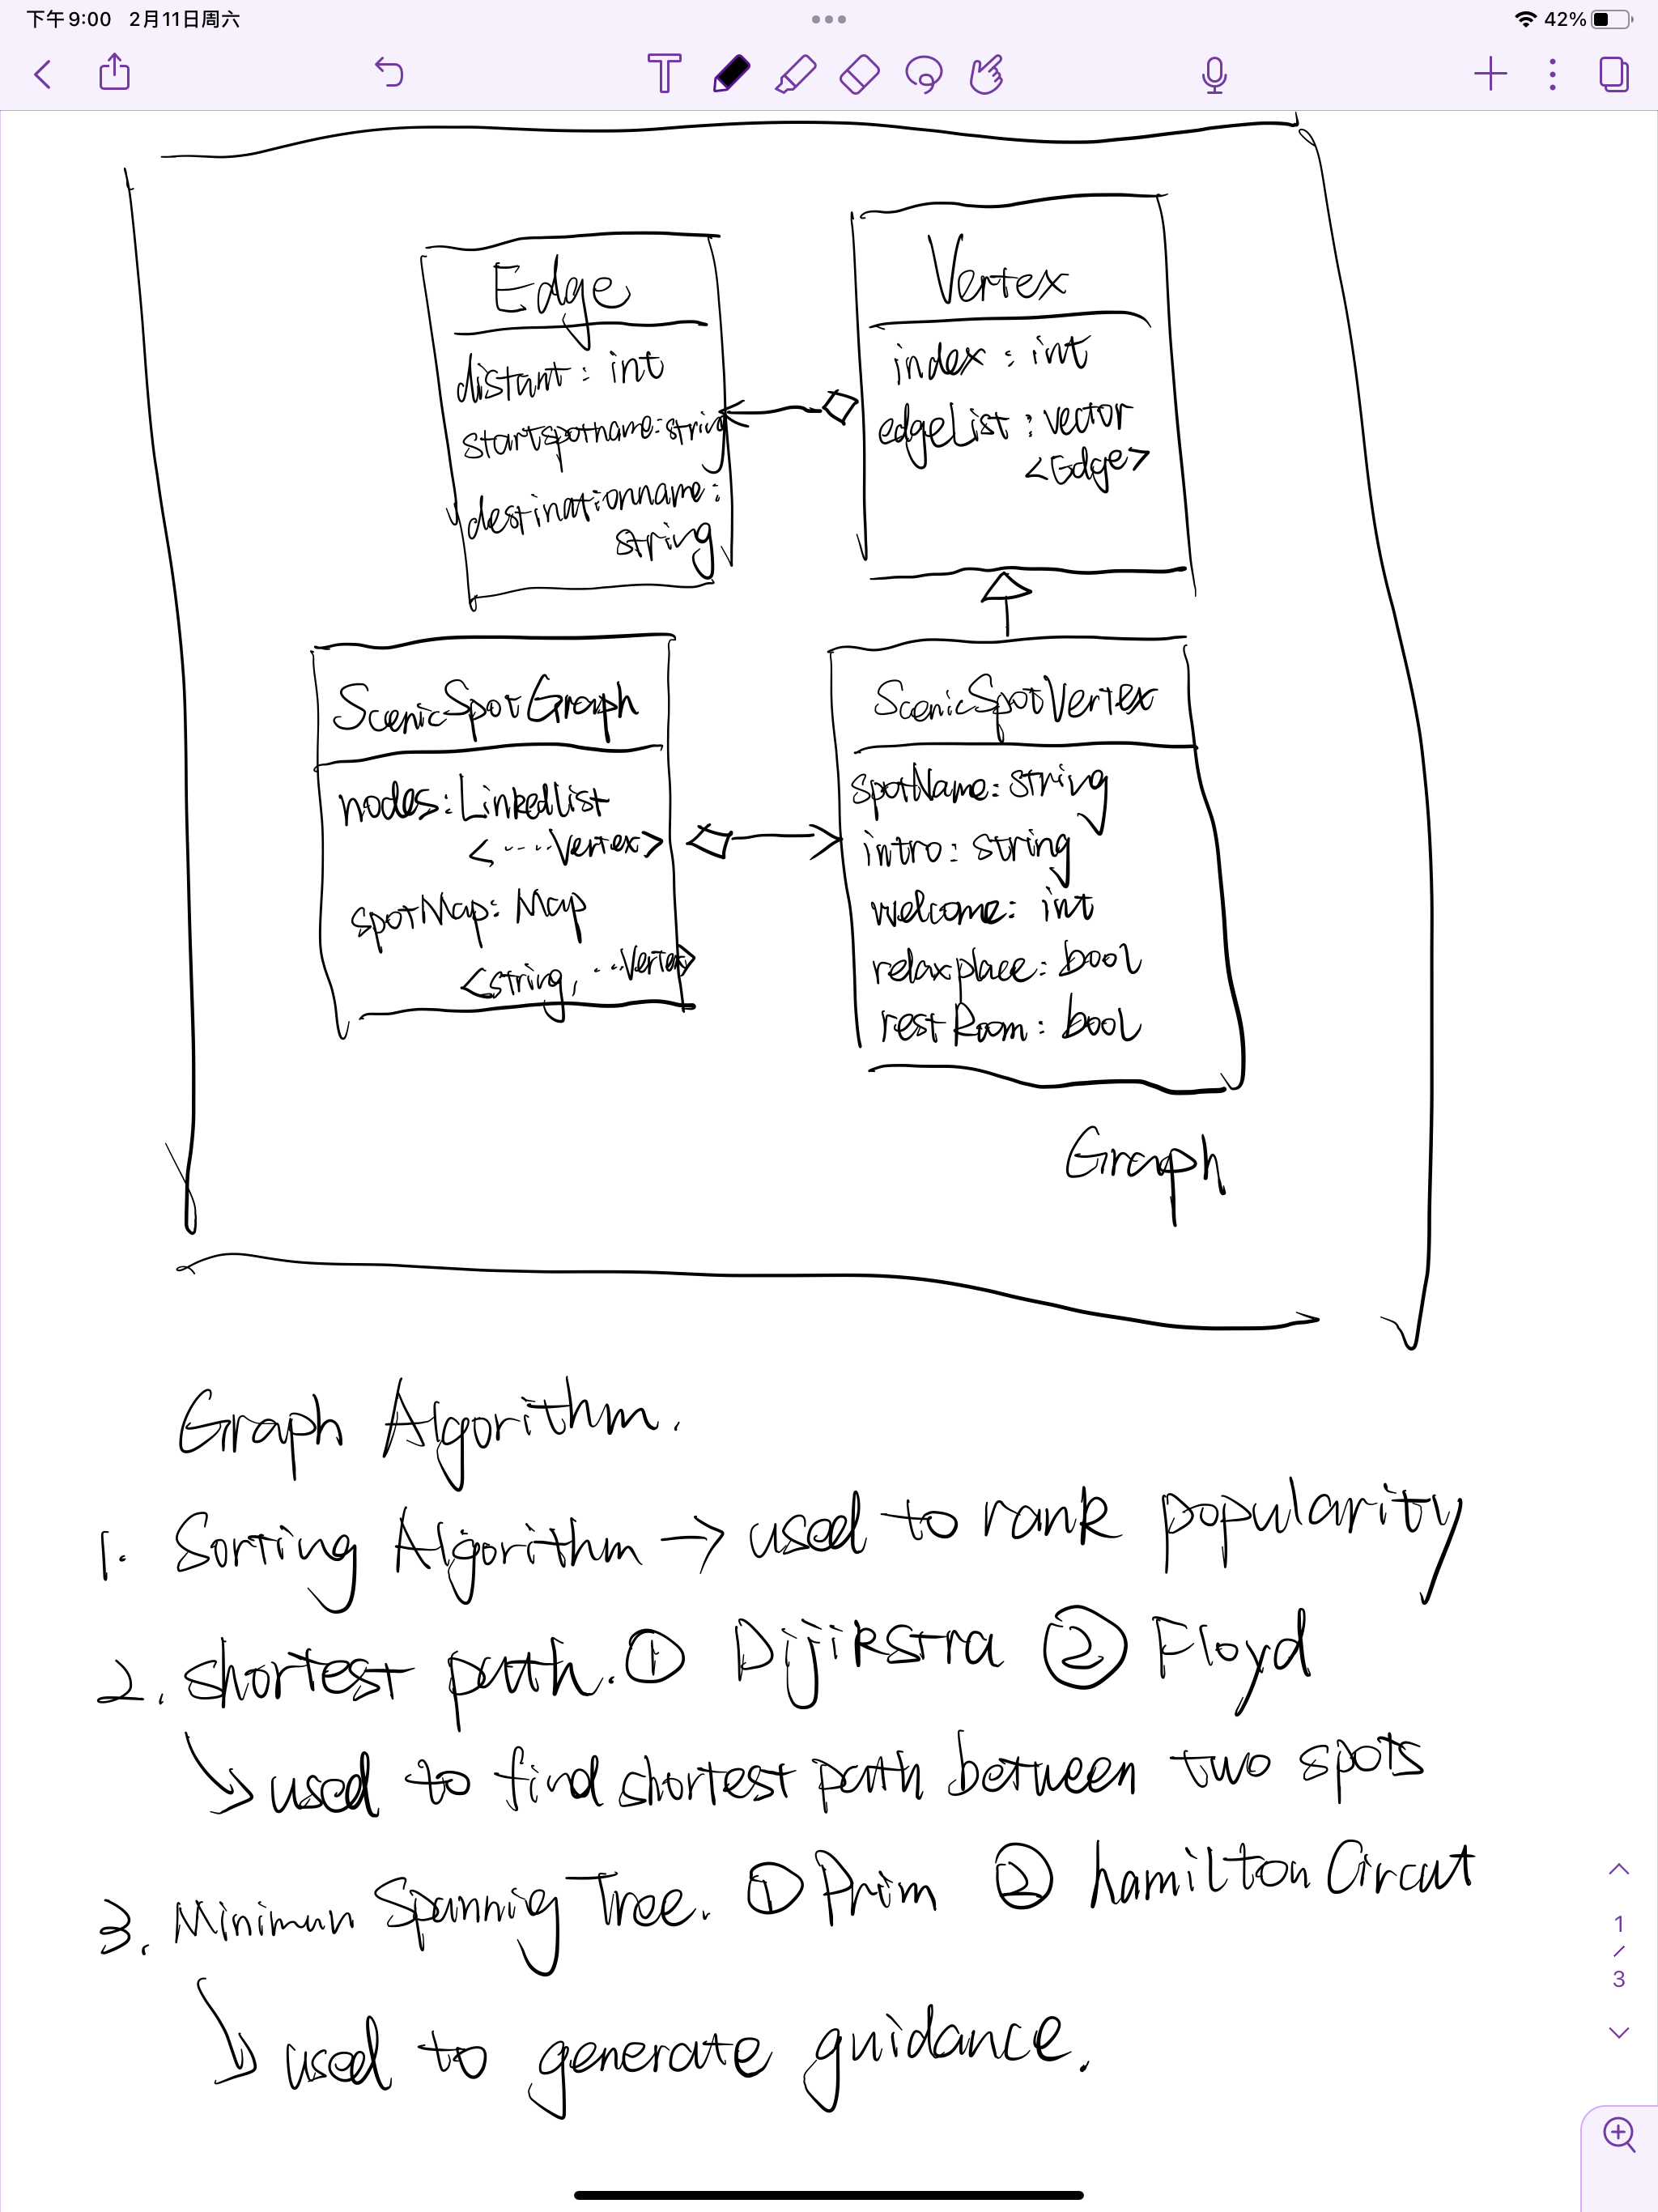 下午9:00 2月11日周六
42%
Edge
distant: int
startspotname: string
destinationname:
string
Vertex
index: int
edgeList: vector
<Edge>
ScenicSpotGraph
nodes: LinkedList
<....Vertex>
spotMap: Map
<string, ...Vertex>
ScenicSpotVertex
spotName: string
intro: string
welcome: int
relaxplace: bool
restRoom: bool
Graph
Graph Algorithm.
1. Sorting Algorithm → used to rank popularity
2. shortest path. ① Dijikstra ② Floyd
↘ used to find shortest path between two spots
3. Minimun Spanning Tree. ① Prim ② hamilton Circut
↘ used to generate guidance.
1
/
3